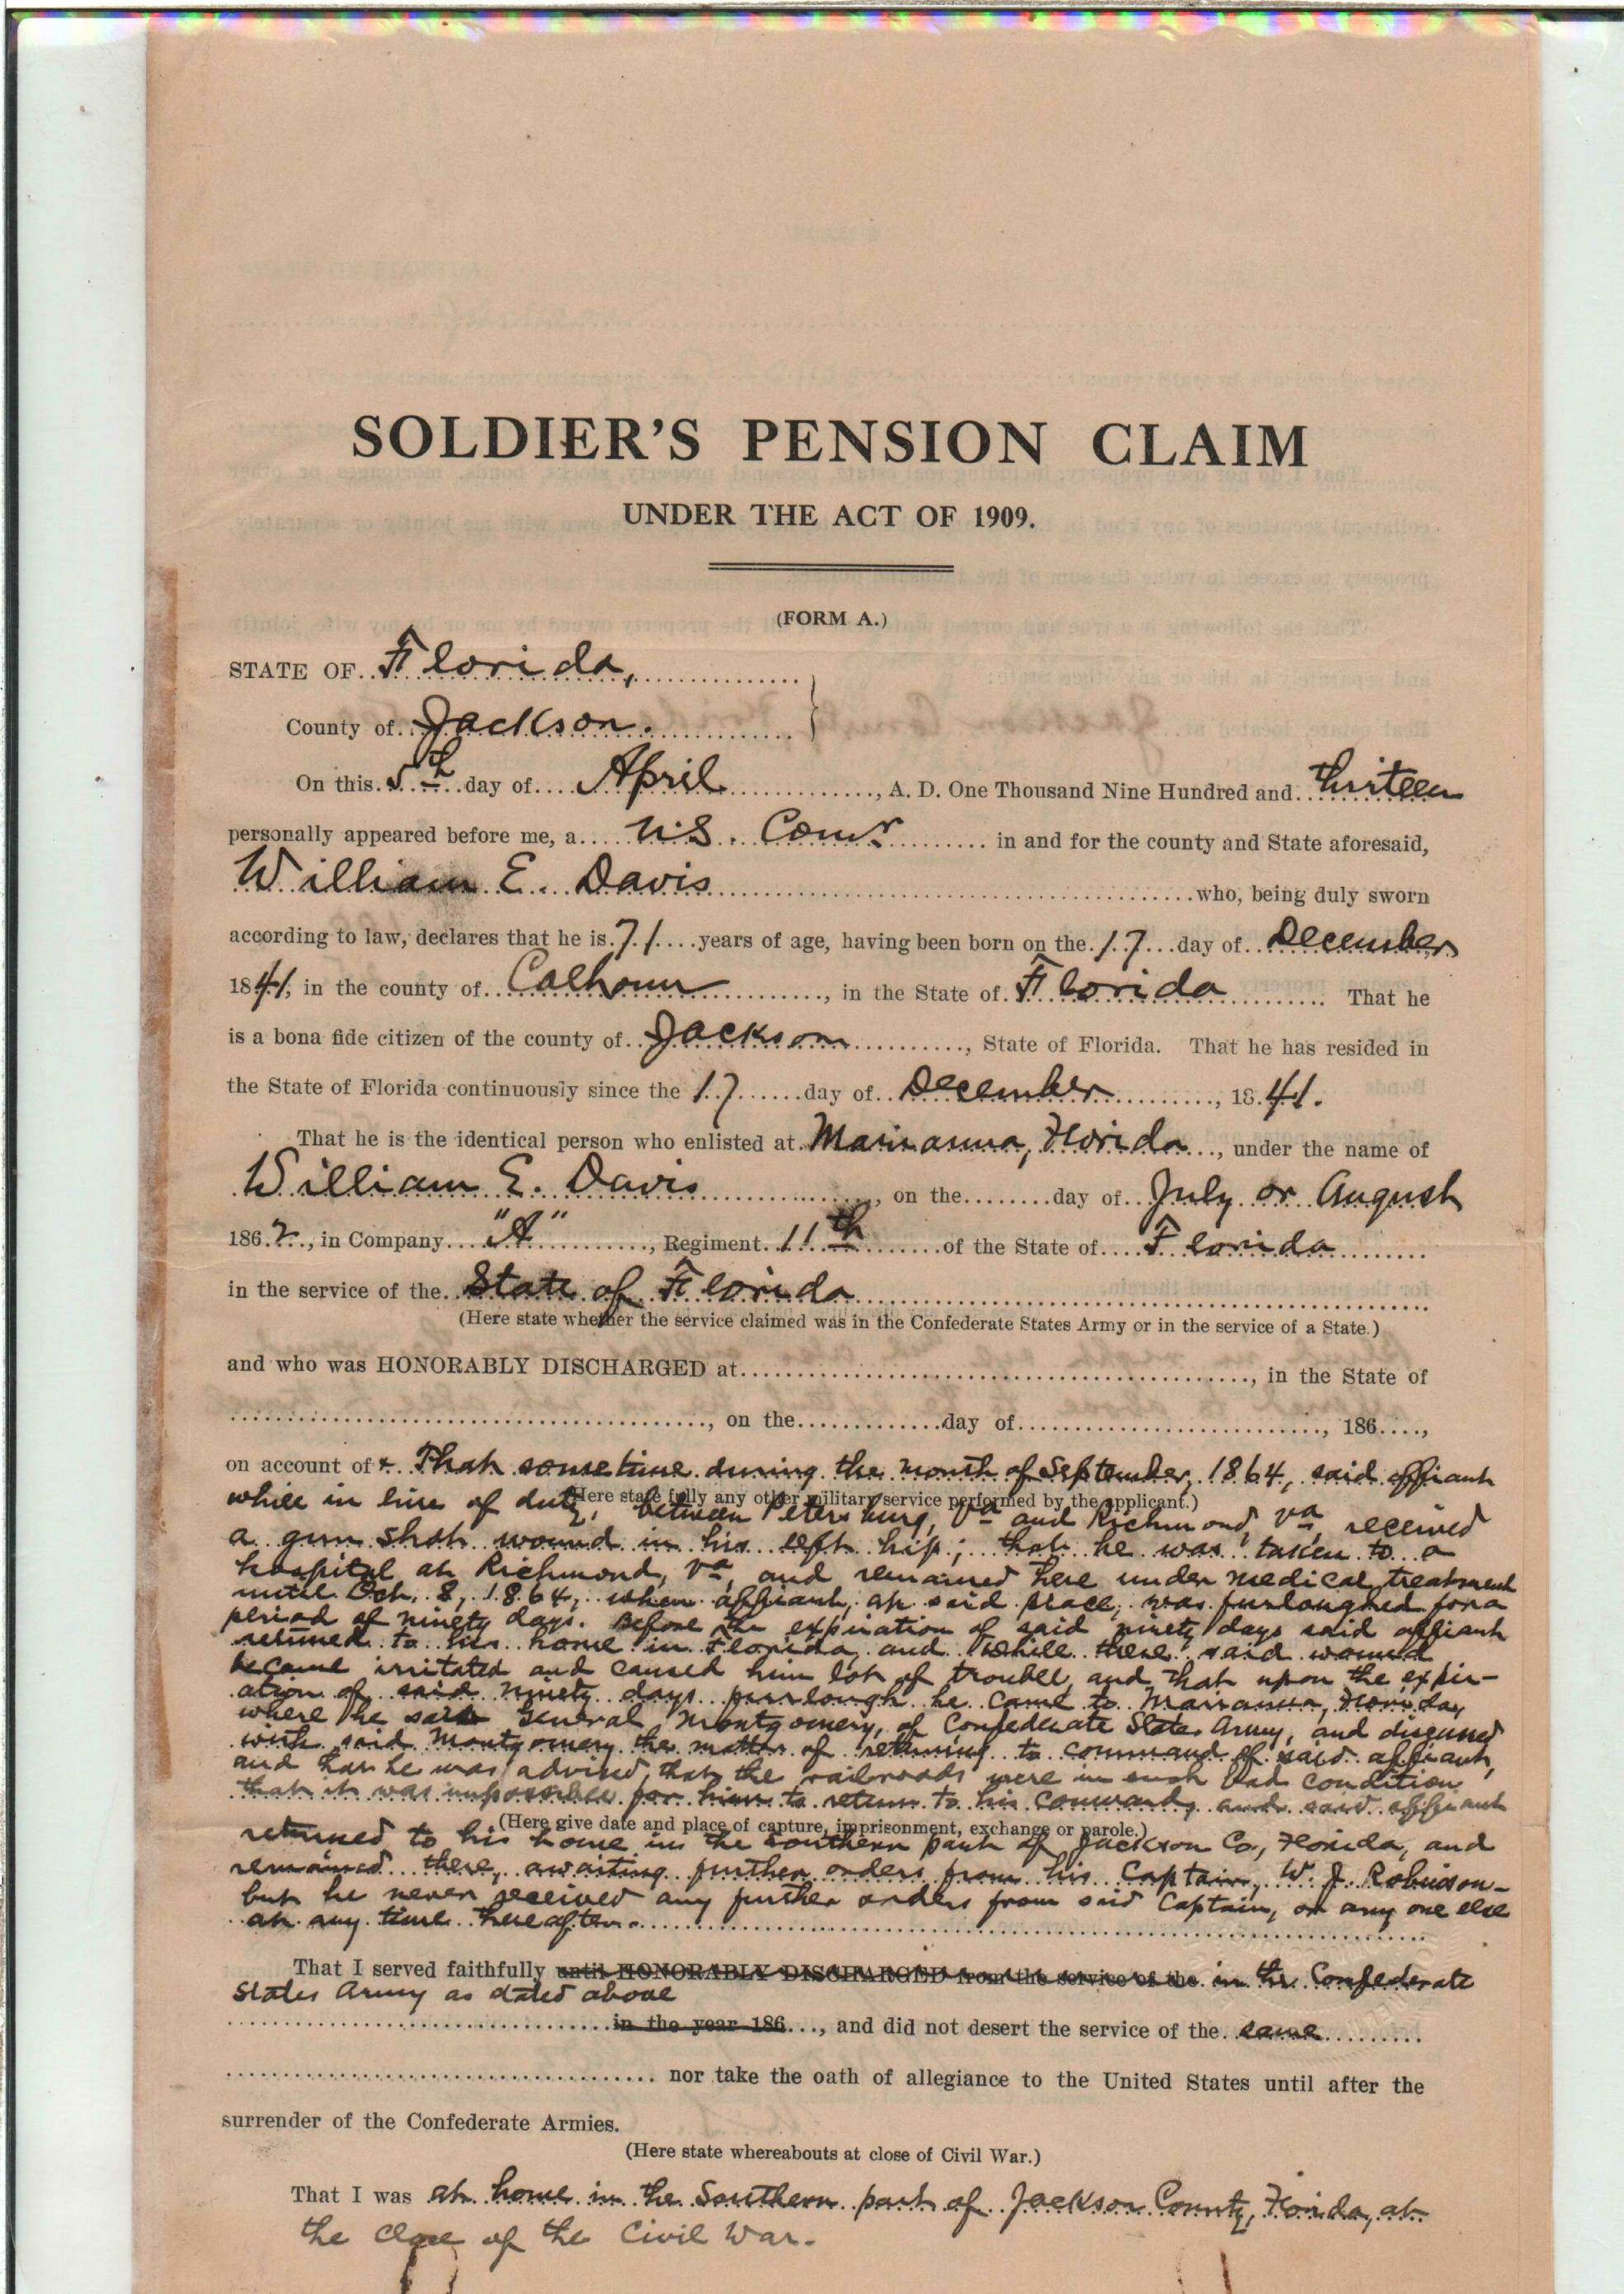 SOLDIER'S PENSION CLAIM
UNDER THE ACT OF 1909.
(FORM A.)
STATE OF Florida,
County of Jackson.
On this 5th day of April, A. D. One Thousand Nine Hundred and thirteen
personally appeared before me, a U.S. Comr in and for the county and State aforesaid,
William E. Davis who, being duly sworn
according to law, declares that he is 71 years of age, having been born on the 17 day of December
1841, in the county of Calhoun, in the State of Florida. That he
is a bona fide citizen of the county of Jackson, State of Florida. That he has resided in
the State of Florida continuously since the 17 day of December, 1841.
That he is the identical person who enlisted at Marianna, Florida, under the name of
William E. Davis, on the day of July or August
1862, in Company "A", Regiment 11th of the State of Florida
in the service of the State of Florida
(Here state whether the service claimed was in the Confederate States Army or in the service of a State.)
and who was HONORABLY DISCHARGED at, in the State of
, on the day of, 186 ,
on account of That sometime during the month of September, 1864, said affiant
(Here state fully any other military service performed by the applicant.)
while in line of duty, between Petersburg, Va and Richmond, Va, received
a gun shot wound in his left hip; that he was taken to a
hospital at Richmond, Va, and remained here under medical treatment
until Oct. 8, 1864, when affiant, at said place, was furloughed for a
period of ninety days. Before the expiration of said ninety days said affiant
returned to his home in Florida, and while there said wound
became irritated and caused him lot of trouble, and that upon the expir-
ation of said ninety days furlough he came to Marianna, Florida,
where he saw General Montgomery, of Confederate States Army, and discussed
with said Montgomery the matter of returning to command of said affiant,
and that he was advised that the railroads were in such bad condition
that it was impossible for him to return to his command, and said affiant
(Here give date and place of capture, imprisonment, exchange or parole.)
returned to his home in the southern part of Jackson Co., Florida, and
remained there, awaiting further orders from his Captain, W. J. Robinson-
but he never received any further orders from said Captain, or any one else
at any time thereafter.
That I served faithfully until HONORABLY DISCHARGED from the service of the in the Confederate
States Army as dated above
in the year 186 , and did not desert the service of the same
nor take the oath of allegiance to the United States until after the
surrender of the Confederate Armies.
(Here state whereabouts at close of Civil War.)
That I was at home in the Southern part of Jackson County, Florida, at
the close of the Civil War.